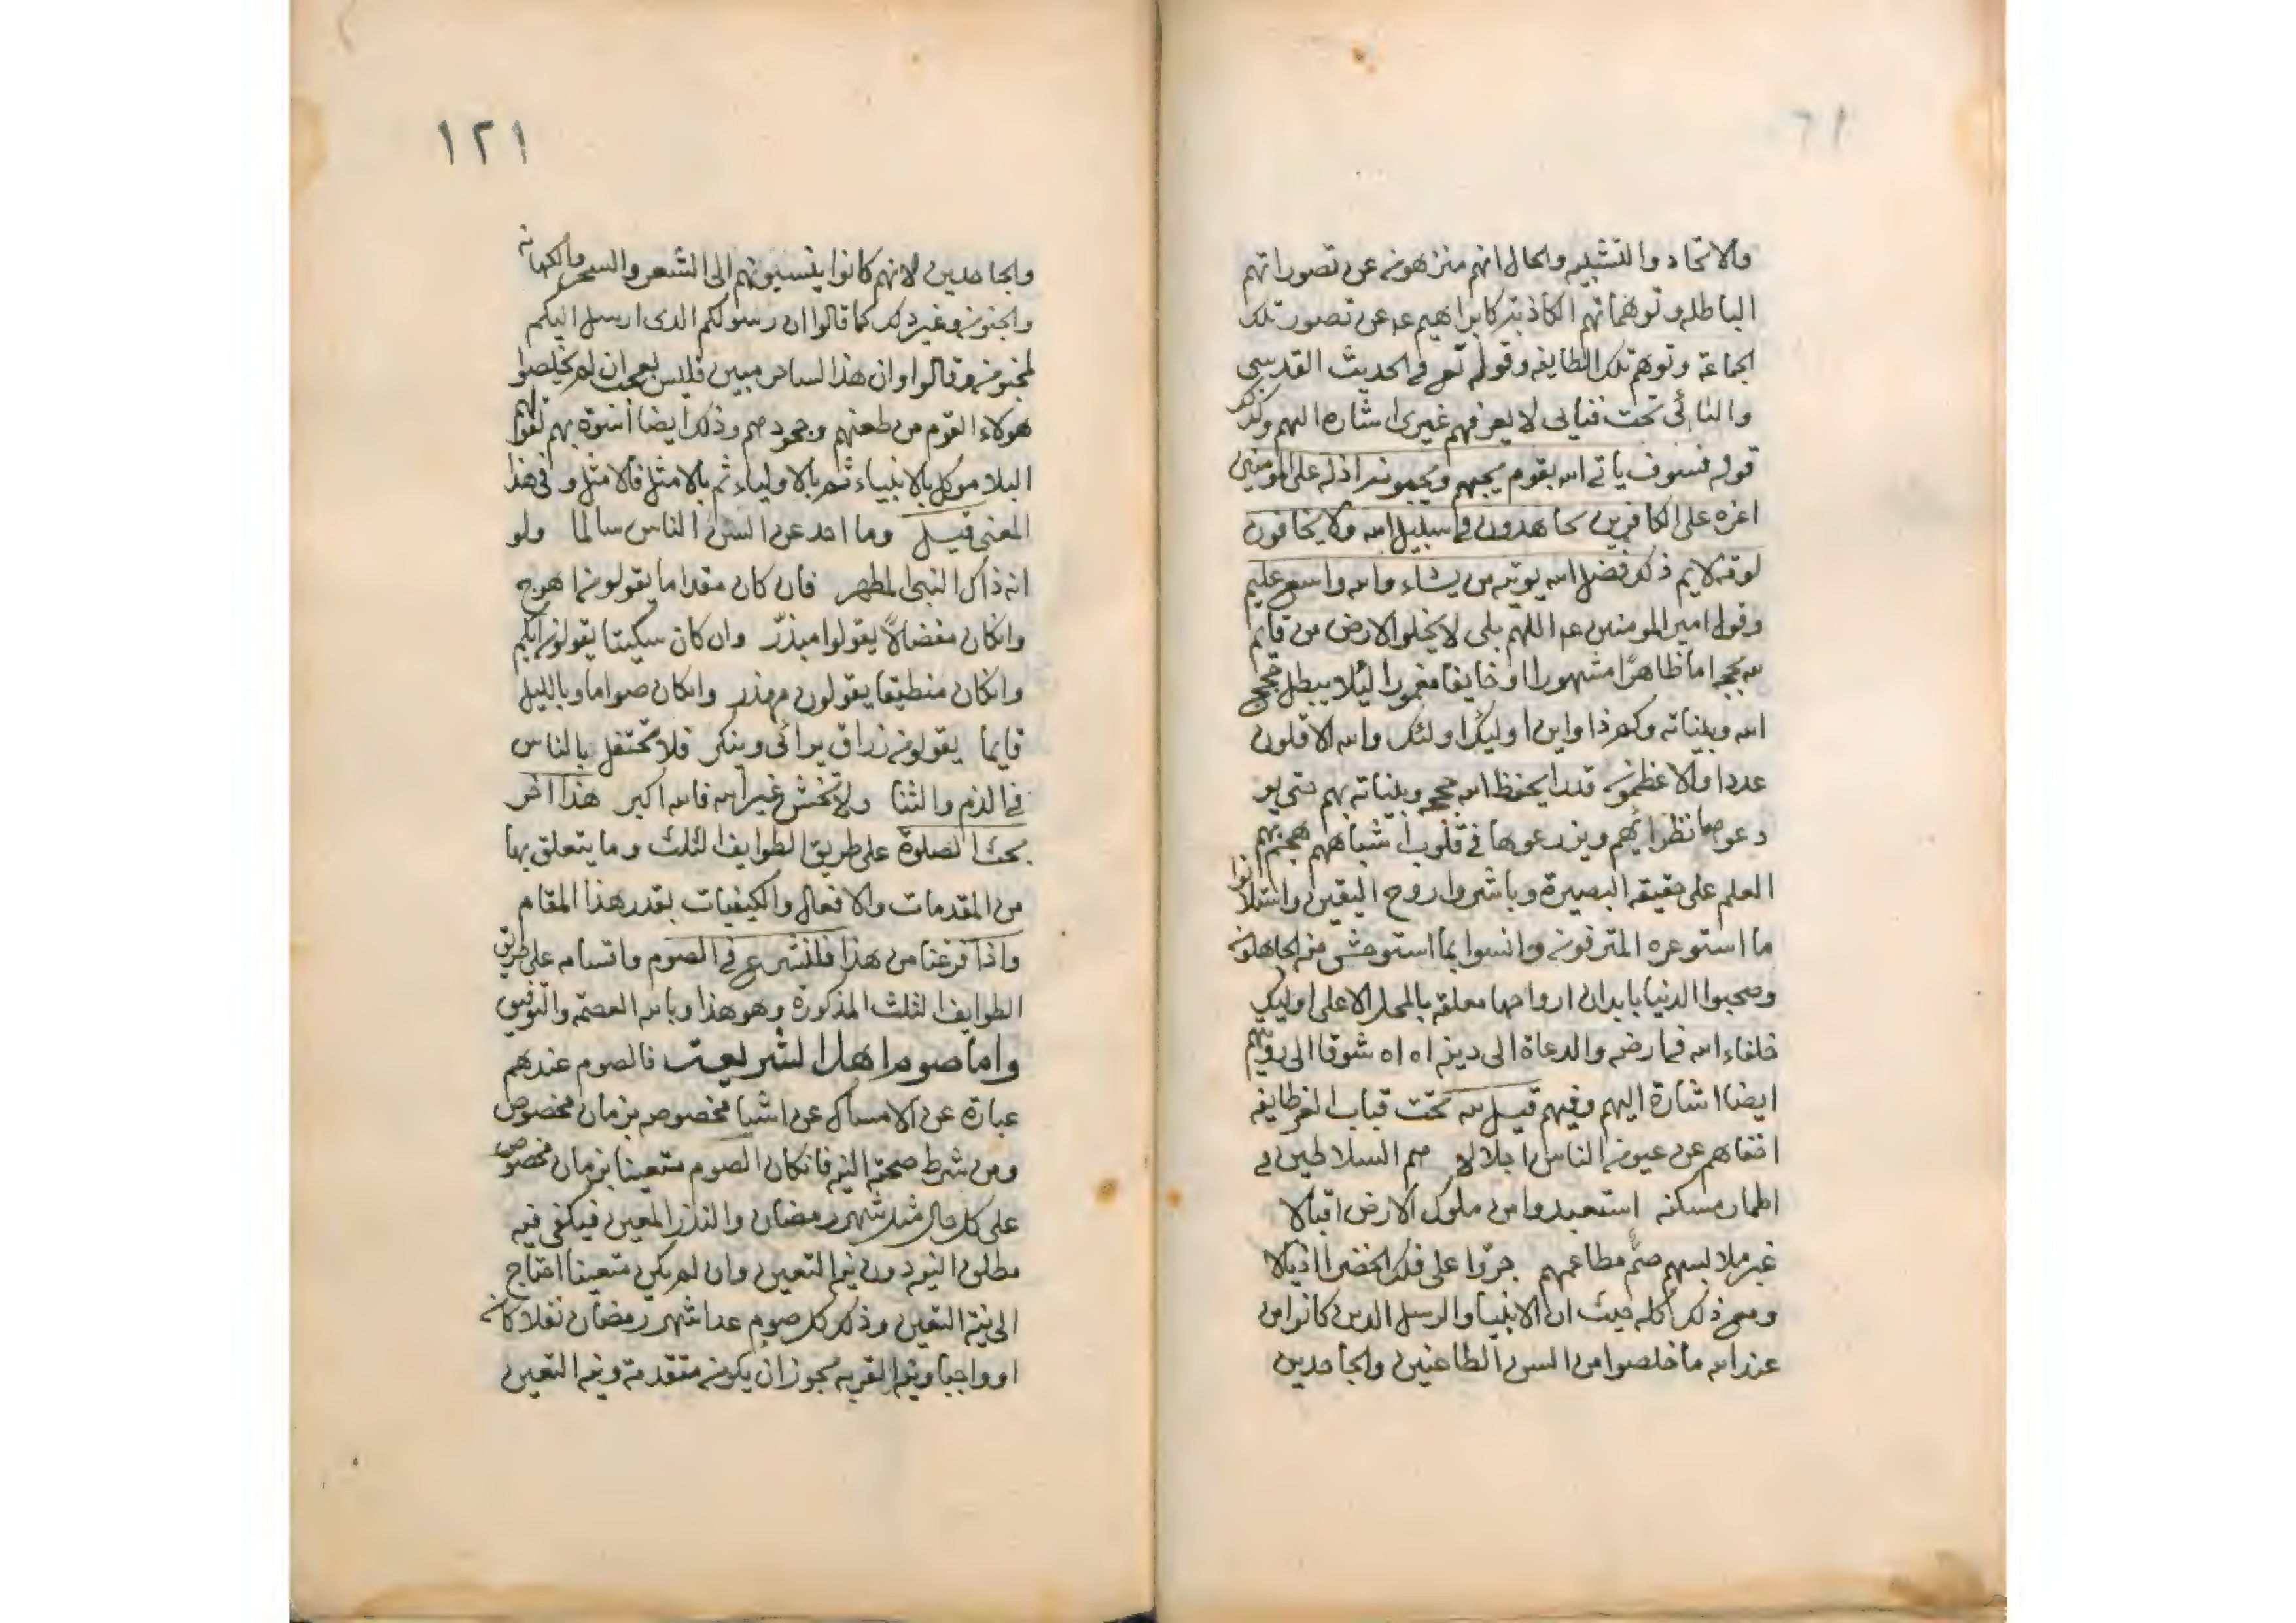 والاتحاد والتشبيه والحال انهم منزهون عن تصوراتهم
الباطله وتوهماتهم الكاذبة كابراهيم عم عن تصور تلك
الجماعة وتوهم تلك الطايفه وقوله تع في الحديث القدسي
تحت قبابي لا يعرفهم غيري اشاره اليهم وكذلك
قوله فسوف ياتي الله بقوم يحبهم ويحبونه اذله على المومنين
اعزه على الكافرين يجاهدون في سبيل الله ولا يخافون
لومة لايم ذلك فضل الله يوتيه من يشاء والله واسع عليم
وقول امير المومنين عم اللهم بلى لا يخلوا الارض من قايم
لله بحجه اما ظاهرًا مشهورا او خايفا مغمورا ليلا يبطل حجج
الله وبيناته وكم ذا واين اوليك اولئك والله الاقلون
عددا والاعظمون قدرا يحفظ الله حججه وبيناته بهم حتى يو
دعوها نظرائهم ويزرعوها في قلوب اشباههم هجم بهم
العلم على حقيقه البصيرة وباشروا روح اليقين واستلانوا
ما استوعره المترفون وانسوا بما استوحش منه الجاهلون
وصحبوا الدنيا بابدان ارواحها معلقه بالمحل الاعلى اوليك
خلفاء الله في ارضه والدعاة الى دينه اه اه شوقا الى رويتهم
ايضا اشارة اليهم وفيهم قيل لله تحت قباب العز طايفه
اخفاهم عن عيون الناس اجلالا هم السلاطين في
اطمار مسكنه استعبدوا من ملوك الارض اقيالا
غبر ملابسهم شم مطاعمهم جرّوا على فلك الخضرا اذيالا
ومع ذلك كله حيث ان الانبيا والرسل الدين كانوا من
عند الله ما خلصوا من السن الطاعنين والجاحدين
١٢١
والجاحدين لانهم كانوا ينسبونهم الى الشعر والسحر والكهانه
والجنون وغير ذلك كما قالوا ان رسولكم الدى ارسل اليكم
لمجنون وقالوا وان هذا لساحر مبين فليس بعجب ان لم يخلصوا
هولاء القوم من طعنهم وجحودهم وذلك ايضا أسوة بهم لقولهم
البلا موكل بالانبياء ثم بالاولياء ثم بالامثل فالامثل وفي هذا
المعنى قيل وما احد عن السن الناس سالما ولو
انه ذاك النبي المطهر فان كان مقداما يقولون اهوج
وانكان مفضالًا يقولوا مبذّر وان كان سكيتا يقولون ابكم
وانكان منطيقا يقولون مهذر وانكان صواما وبالليل
قايما يقولون زراق يرائى وينكر فلا تحتفل بالناس
في الذم والثنا ولا تخش غير الله فالله اكبر هذا اخر
بحث الصلوة على طريق الطوايف الثلث وما يتعلق بها
من المقدمات والافعال والكيفيات بقدر هذا المقام
واذا فرغنا من هذا فلنشرع في الصوم واقسامه على طريق
الطوايف الثلث المذكورة وهو هذا وبالله العصمة والتوفيق
واما صوم اهل الشريعة فالصوم عندهم
عبارة عن الامساك عن اشيا مخصوصه بزمان مخصوص
ومن شرط صحته النيه فانكان الصوم متعينا بزمان مخصوص
على كل حال مثل شهر رمضان والنذر المعين فيكفى فيه
مطلق النيه دون نية التعين وان لم يكن متعينا احتاج
الى نية التعين وذلك كل صوم عدا شهر رمضان نفلا كان
او واجبا ونيه القربه يجوز ان يكون متقدمة ونيه التعين